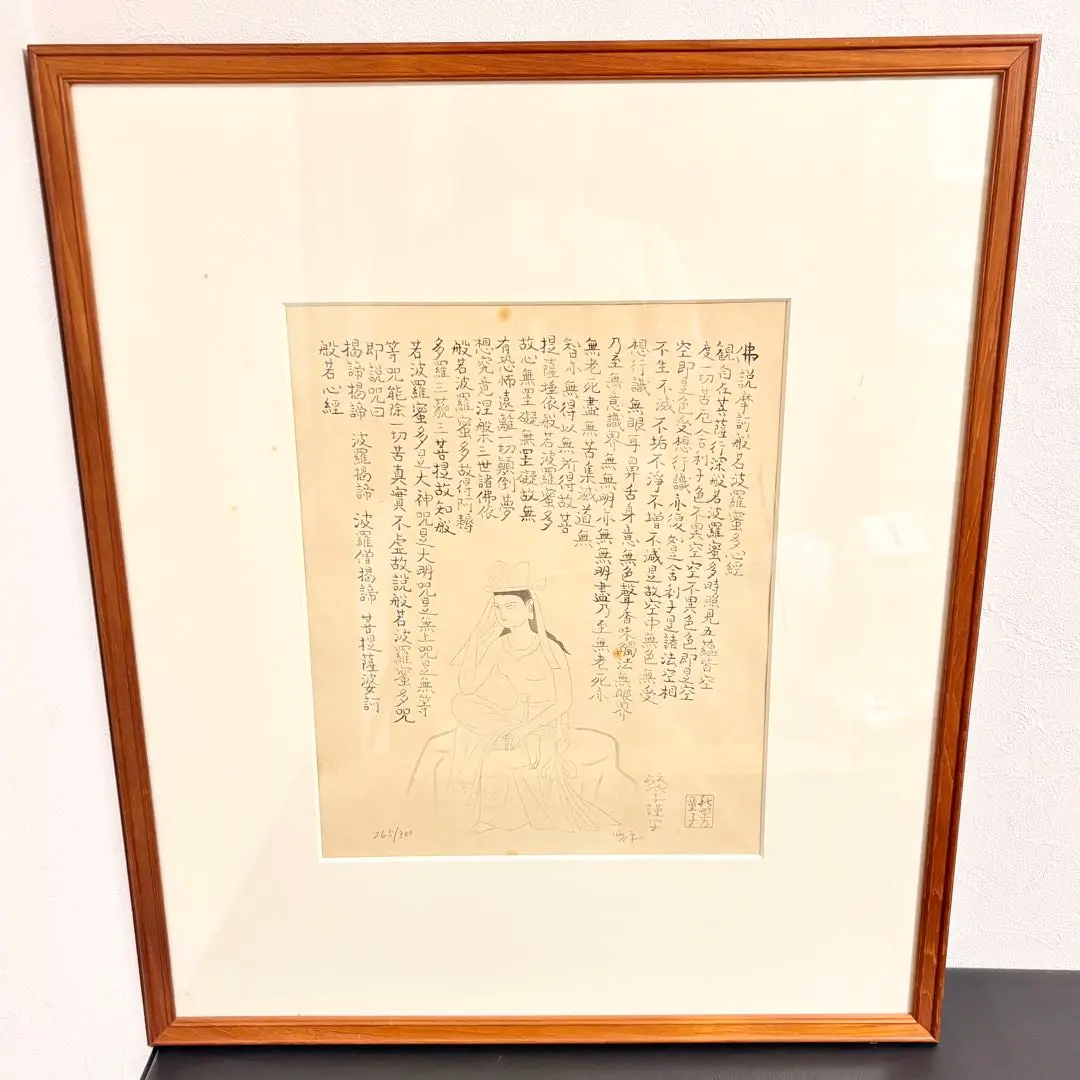 佛説摩訶般若波羅蜜多心經
観自在菩薩行深般若波羅蜜多時照見五蘊皆空
度一切苦厄舎利子色不異空空不異色色即是空
空即是色受想行識亦復如是舎利子是諸法空相
不生不滅不垢不淨不増不減是故空中無色無受
想行識無眼耳鼻舌身意無色聲香味觸法無眼界
乃至無意識界無無明亦無無明盡乃至無老死亦
無老死盡無苦集滅道無
智亦無得以無所得故菩
提薩埵依般若波羅蜜多
故心無罣礙無罣礙故無
有恐怖遠離一切顛倒夢
想究竟涅槃三世諸佛依
般若波羅蜜多故得阿耨
多羅三藐三菩提故知般
若波羅蜜多是大神咒是大明咒是無上咒是無等
等咒能除一切苦真實不虚故説般若波羅蜜多咒
即説咒曰
揭諦揭諦 波羅揭諦 波羅僧揭諦 菩提薩婆訶
般若心經
謹写
265/300